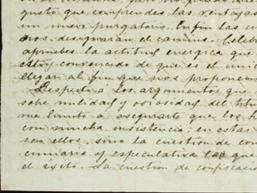 gusto que comprendas las ventajas
un nuevo purgatorio. En fin las
nos designarán el camino. Celebro
apruebes la actitud enérgica que
estoy convencido de que es el
llegar al fin que nos proponemos
Respecto a los argumentos que
sobre nulidad y ociosidad del
me limito a asegurarte que los
con mucha insistencia; en estas
son ellos, sino la cuestion de
y especulativa la que
el éxito. La cuestion de confiscacion